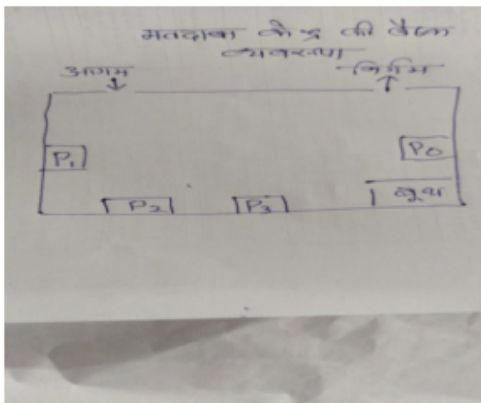 मतदाता केन्द्र की बैठक
व्यवस्था
आगम निर्गम
P1 PO
P2 P3 बूथ